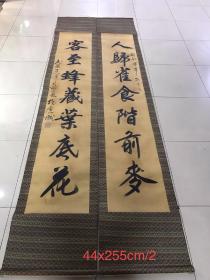 人歸雀食階前麥
客至蜂藏葉底花
44x255cm/2